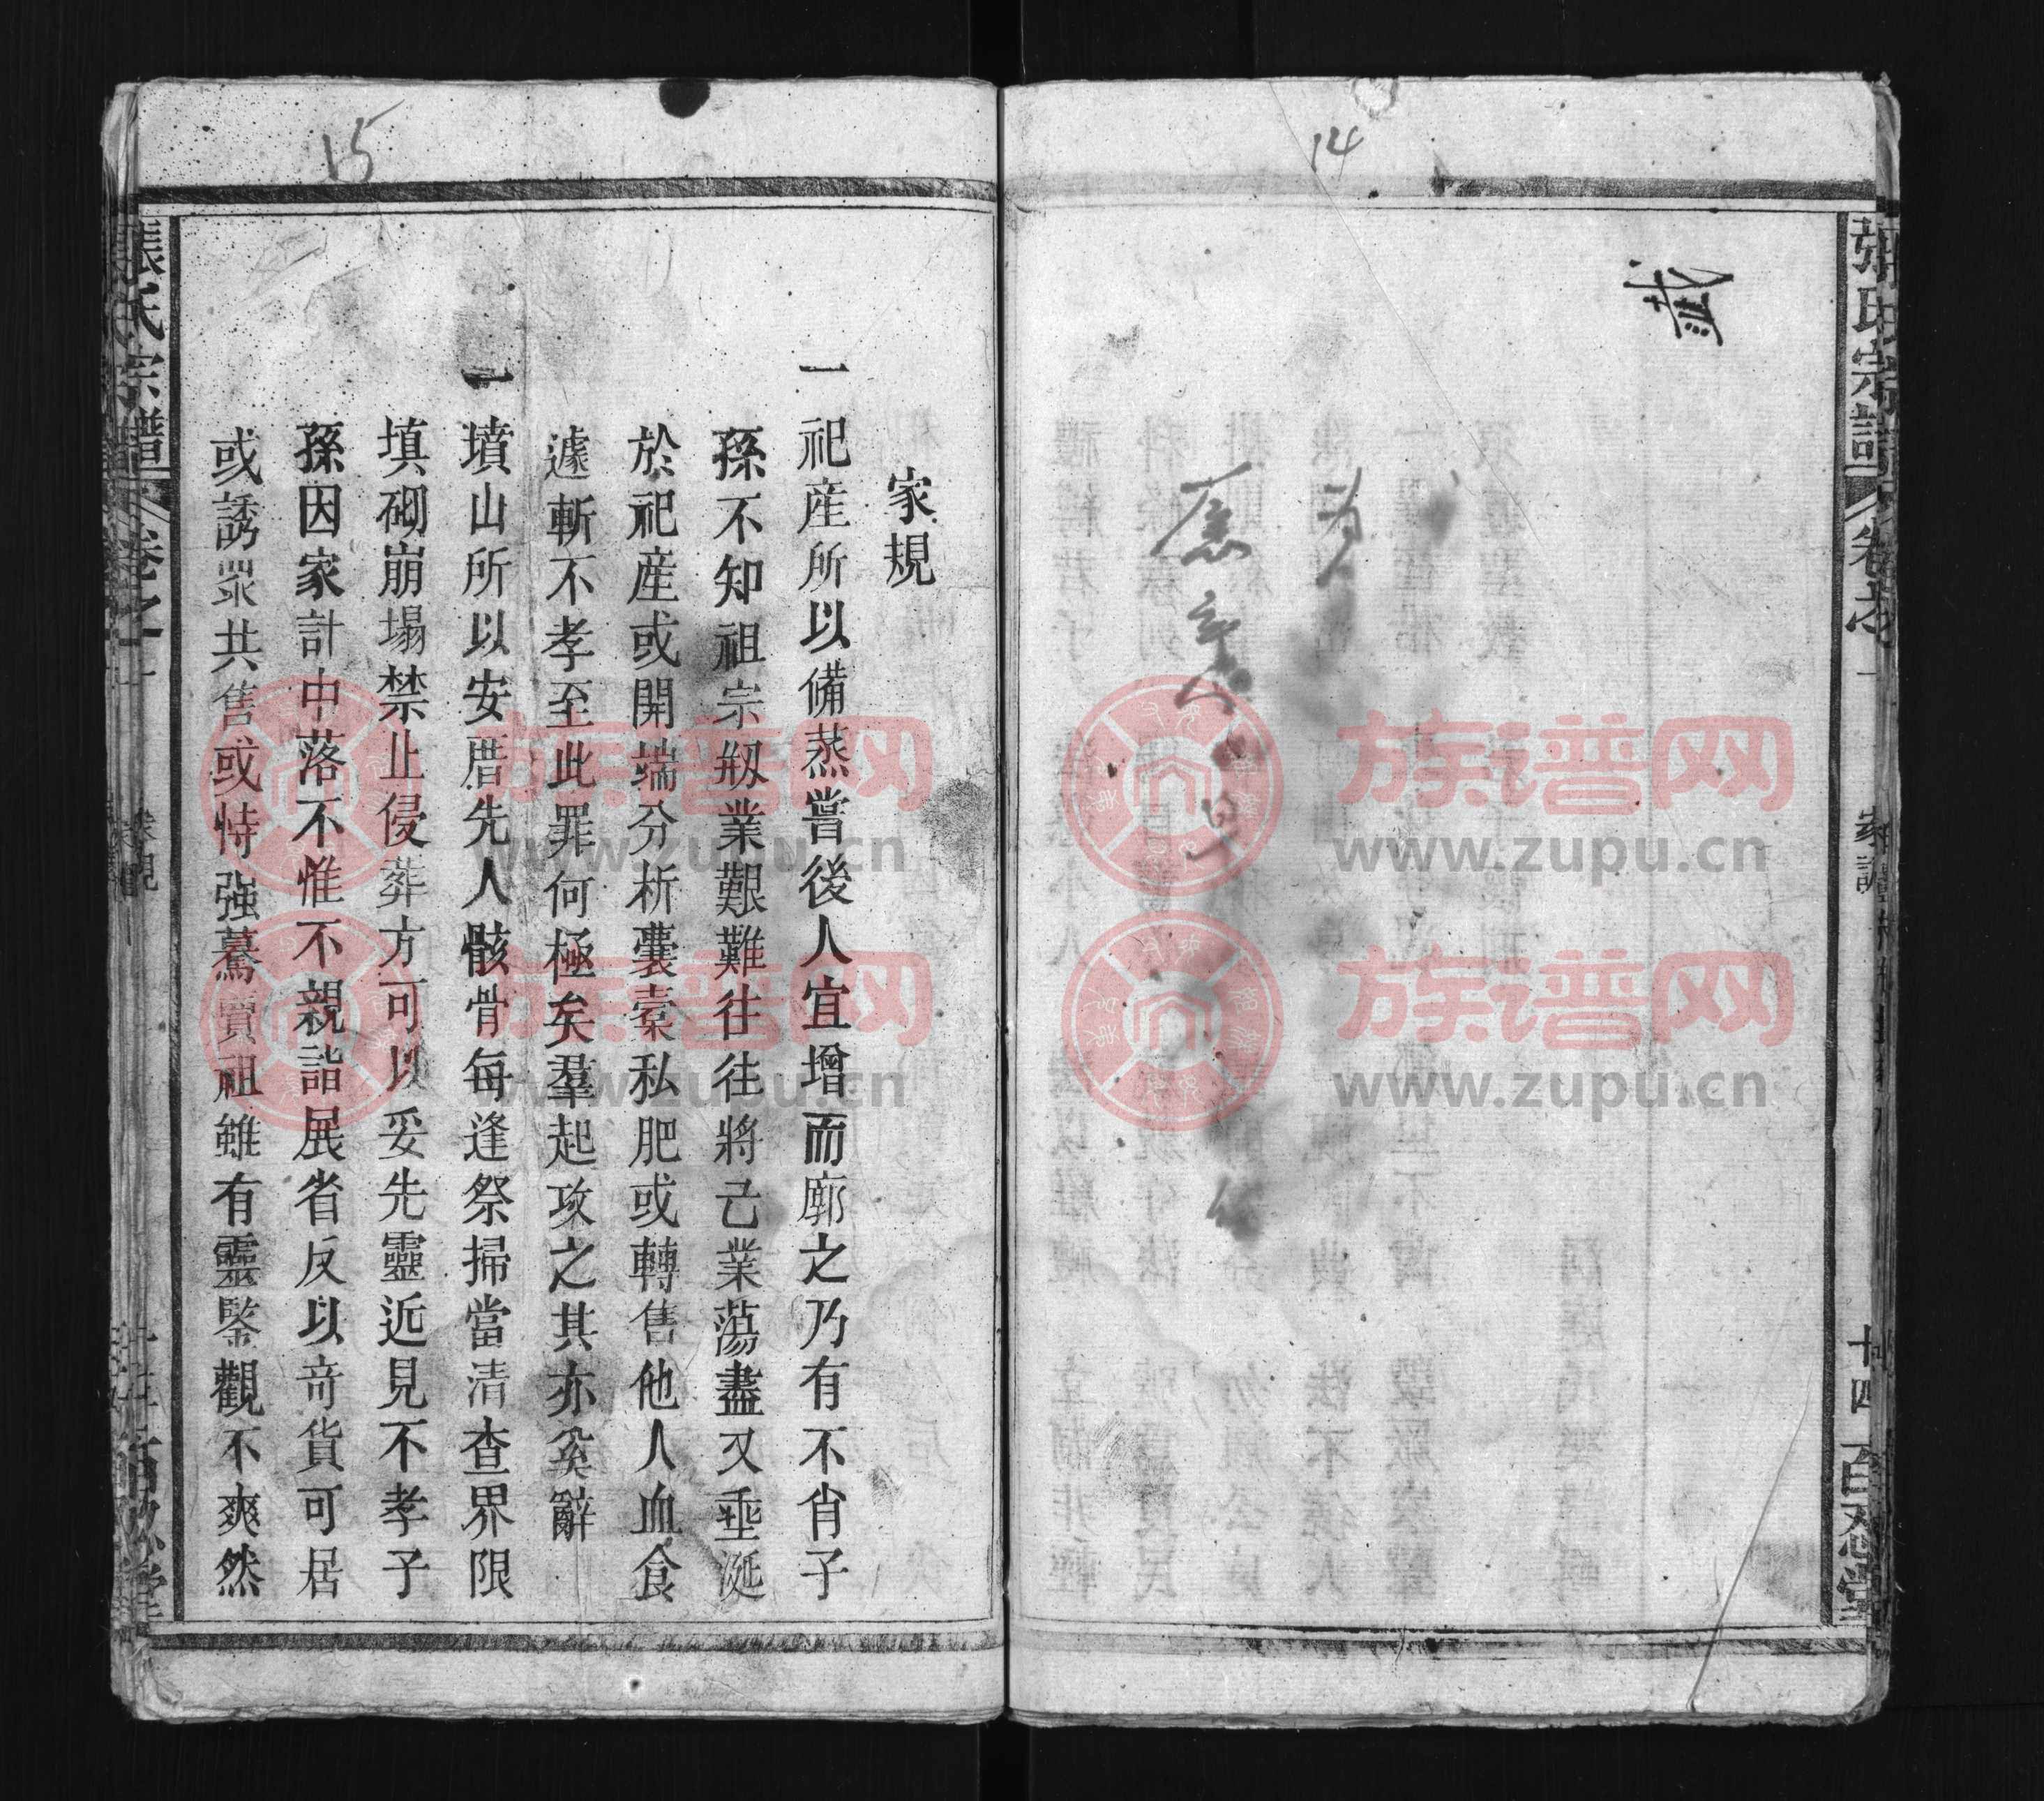 14
張氏宗譜
卷之一
家譜
十四
百忍堂
15
家規
一祀産所以備蒸嘗後人宜增而廓之乃有不肖子
孫不知祖宗剏業艱難往往將己業蕩盡又垂涎
於祀産或開端分析囊橐私肥或轉售他人血食
遽斬不孝至此罪何極矣羣起攻之其亦奚辭
一墳山所以安厝先人骸骨每逢祭掃當清查界限
填砌崩塌禁止侵葬方可以妥先靈近見不孝子
孫因家計中落不惟不親詣展省反以奇貨可居
或誘眾共售或恃强驀賣祖雖有靈鑒觀不爽然
張氏宗譜
卷之一
家規
族谱网
www.zupu.cn
族谱网
www.zupu.cn
族谱网
www.zupu.cn
族谱网
www.zupu.cn